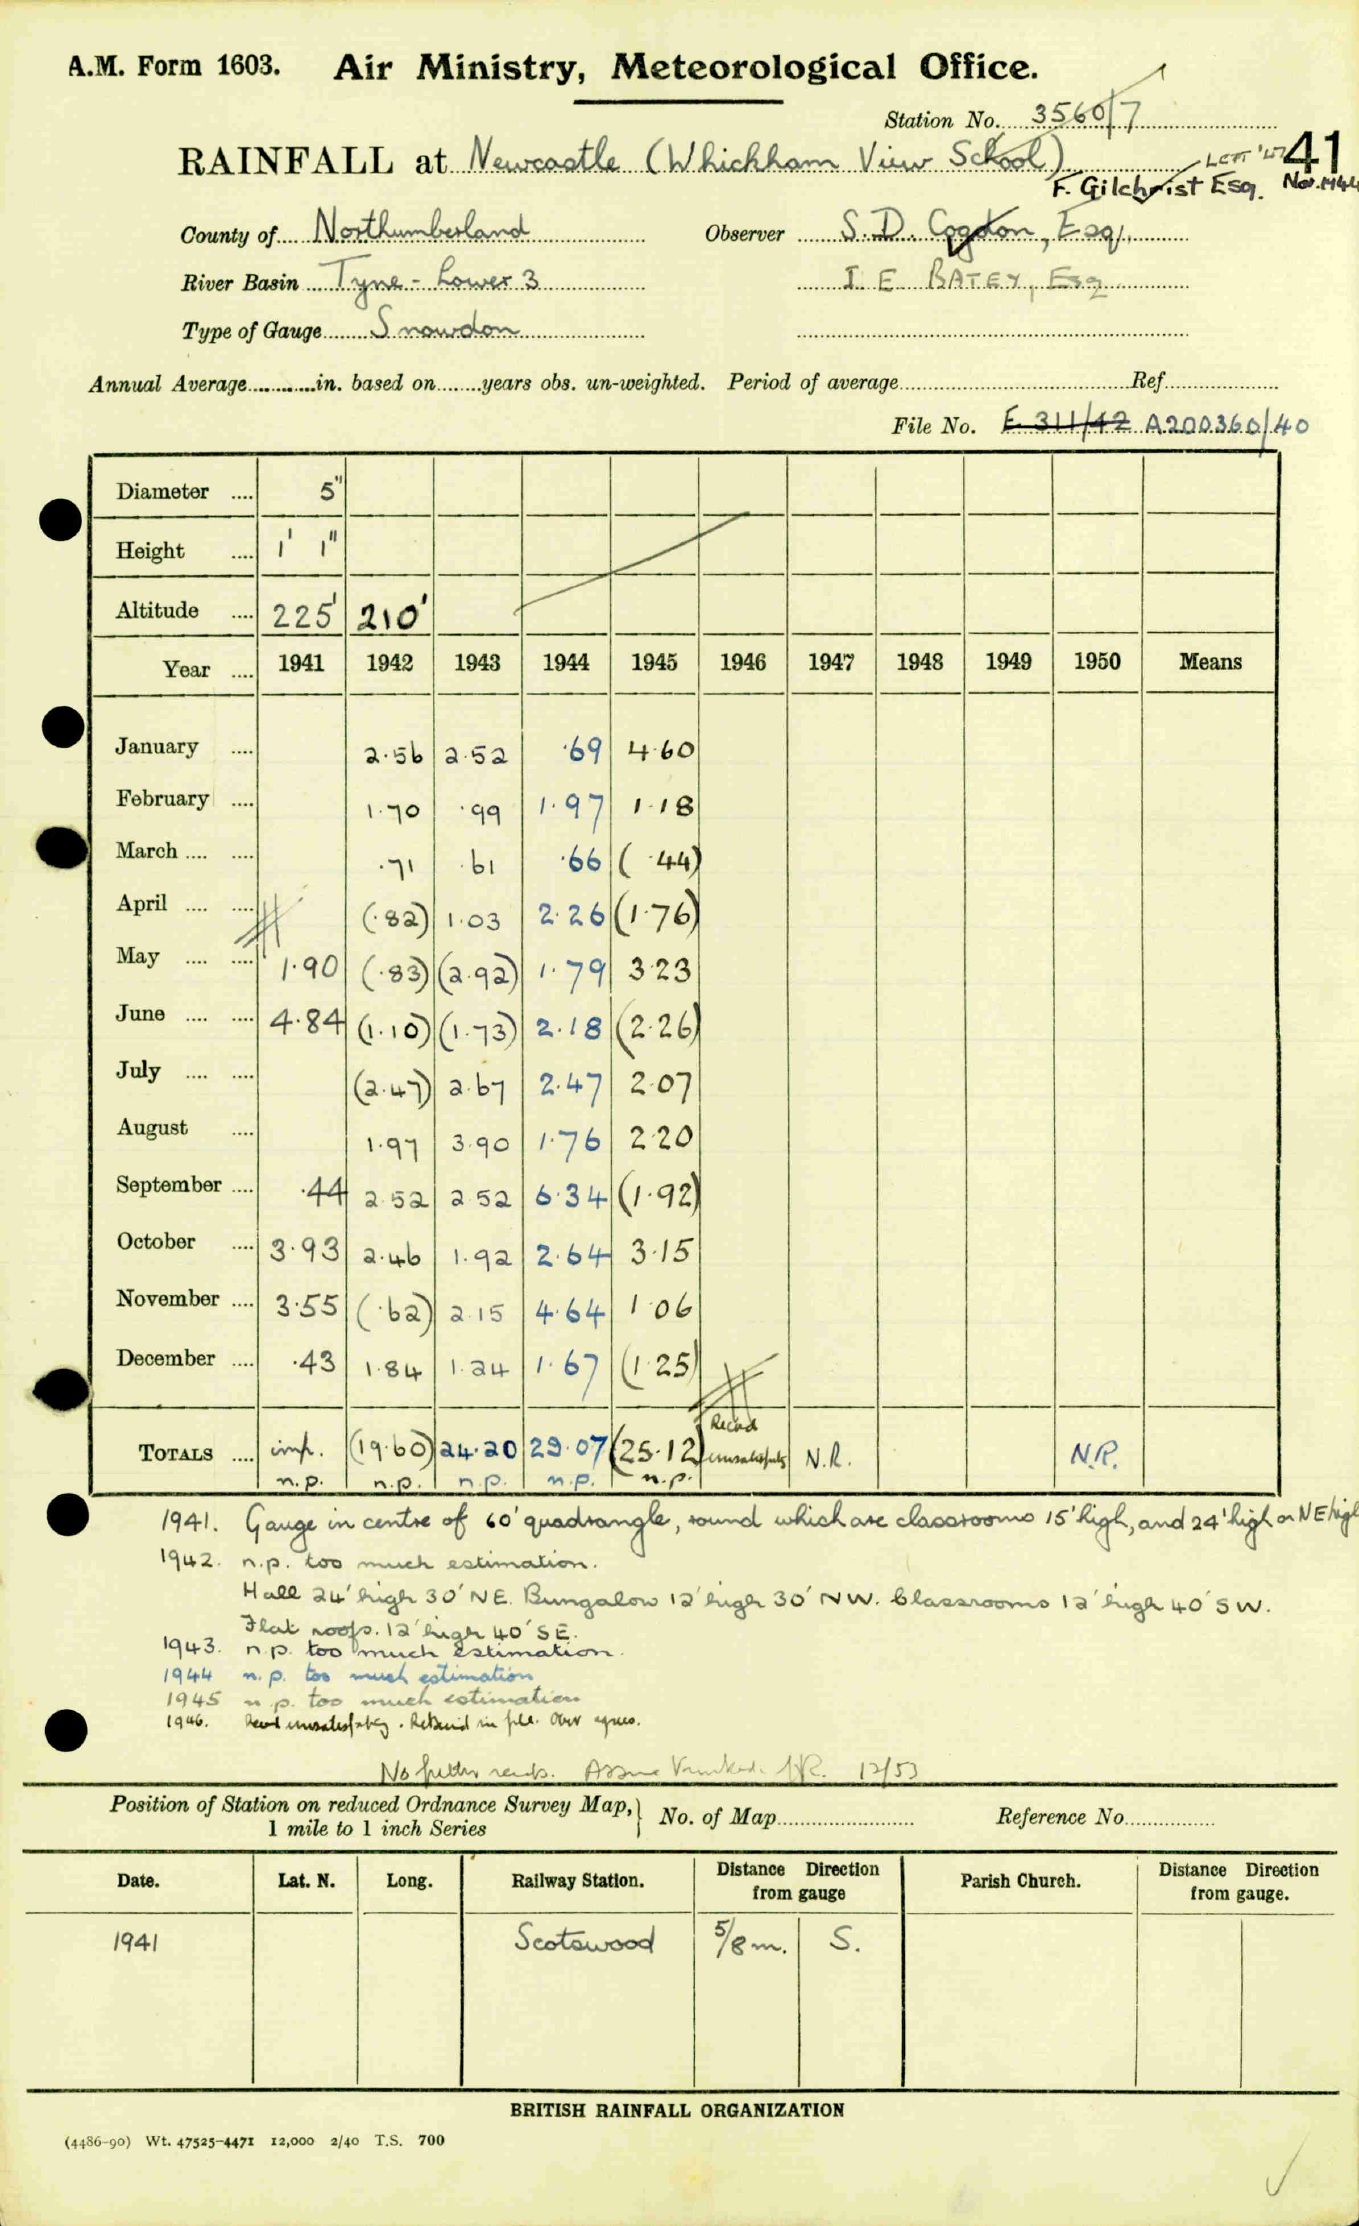 A.M. Form 1603. Air Ministry, Meteorological Office.
Station No. 3560/7
RAINFALL at Newcastle (Whickham View School) LEFT '47 41
F. Gilchrist Esq. Nov. 1944
County of Northumberland Observer S. D. Cogdon, Esq.
River Basin Tyne - Lower 3 I. E. BATEY, Esq
Type of Gauge Snowdon
Annual Average in. based on years obs. un-weighted. Period of average Ref
File No. E 311/42 A200360/40
Diameter 5"
Height 1' 1"
Altitude 225' 210'
Year 1941 1942 1943 1944 1945 1946 1947 1948 1949 1950 Means
January 2.56 2.52 .69 4.60
February 1.70 .99 1.97 1.18
March .71 .61 .66 ( .44)
April (.82) 1.03 2.26 (1.76)
May 1.90 (.83) (2.92) 1.79 3.23
June 4.84 (1.10) (1.73) 2.18 (2.26)
July (2.47) 2.67 2.47 2.07
August 1.97 3.90 1.76 2.20
September .44 2.52 2.52 6.34 (1.92)
October 3.93 2.46 1.92 2.64 3.15
November 3.55 ( .62) 2.15 4.64 1.06
December .43 1.84 1.24 1.67 (1.25)
Record
TOTALS imp. (19.60) 24.20 29.07 (25.12) unsatisfactory N.R. N.R.
n.p. n.p. n.p. n.p. n.p.
1941. Gauge in centre of 60' quadrangle, round which are classrooms 15' high, and 24' high on NE high
1942. n.p. too much estimation.
Hall 24' high 30' NE. Bungalow 12' high 30' NW. Classrooms 12' high 40' SW.
Flat roofs. 12' high 40' SE.
1943. n.p. too much estimation.
1944 n.p. too much estimation
1945 n.p. too much estimation
1946. Record unsatisfactory. Retained in file. Obsr agrees.
No further records. Assume 12/53
Position of Station on reduced Ordnance Survey Map, } No. of Map Reference No.
1 mile to 1 inch Series
Date. Lat. N. Long. Railway Station. Distance Direction from gauge Parish Church. Distance Direction from gauge.
1941 Scotswood 5/8 m. S.
BRITISH RAINFALL ORGANIZATION
(4486-90) Wt. 47525-4471 12,000 2/40 T.S. 700